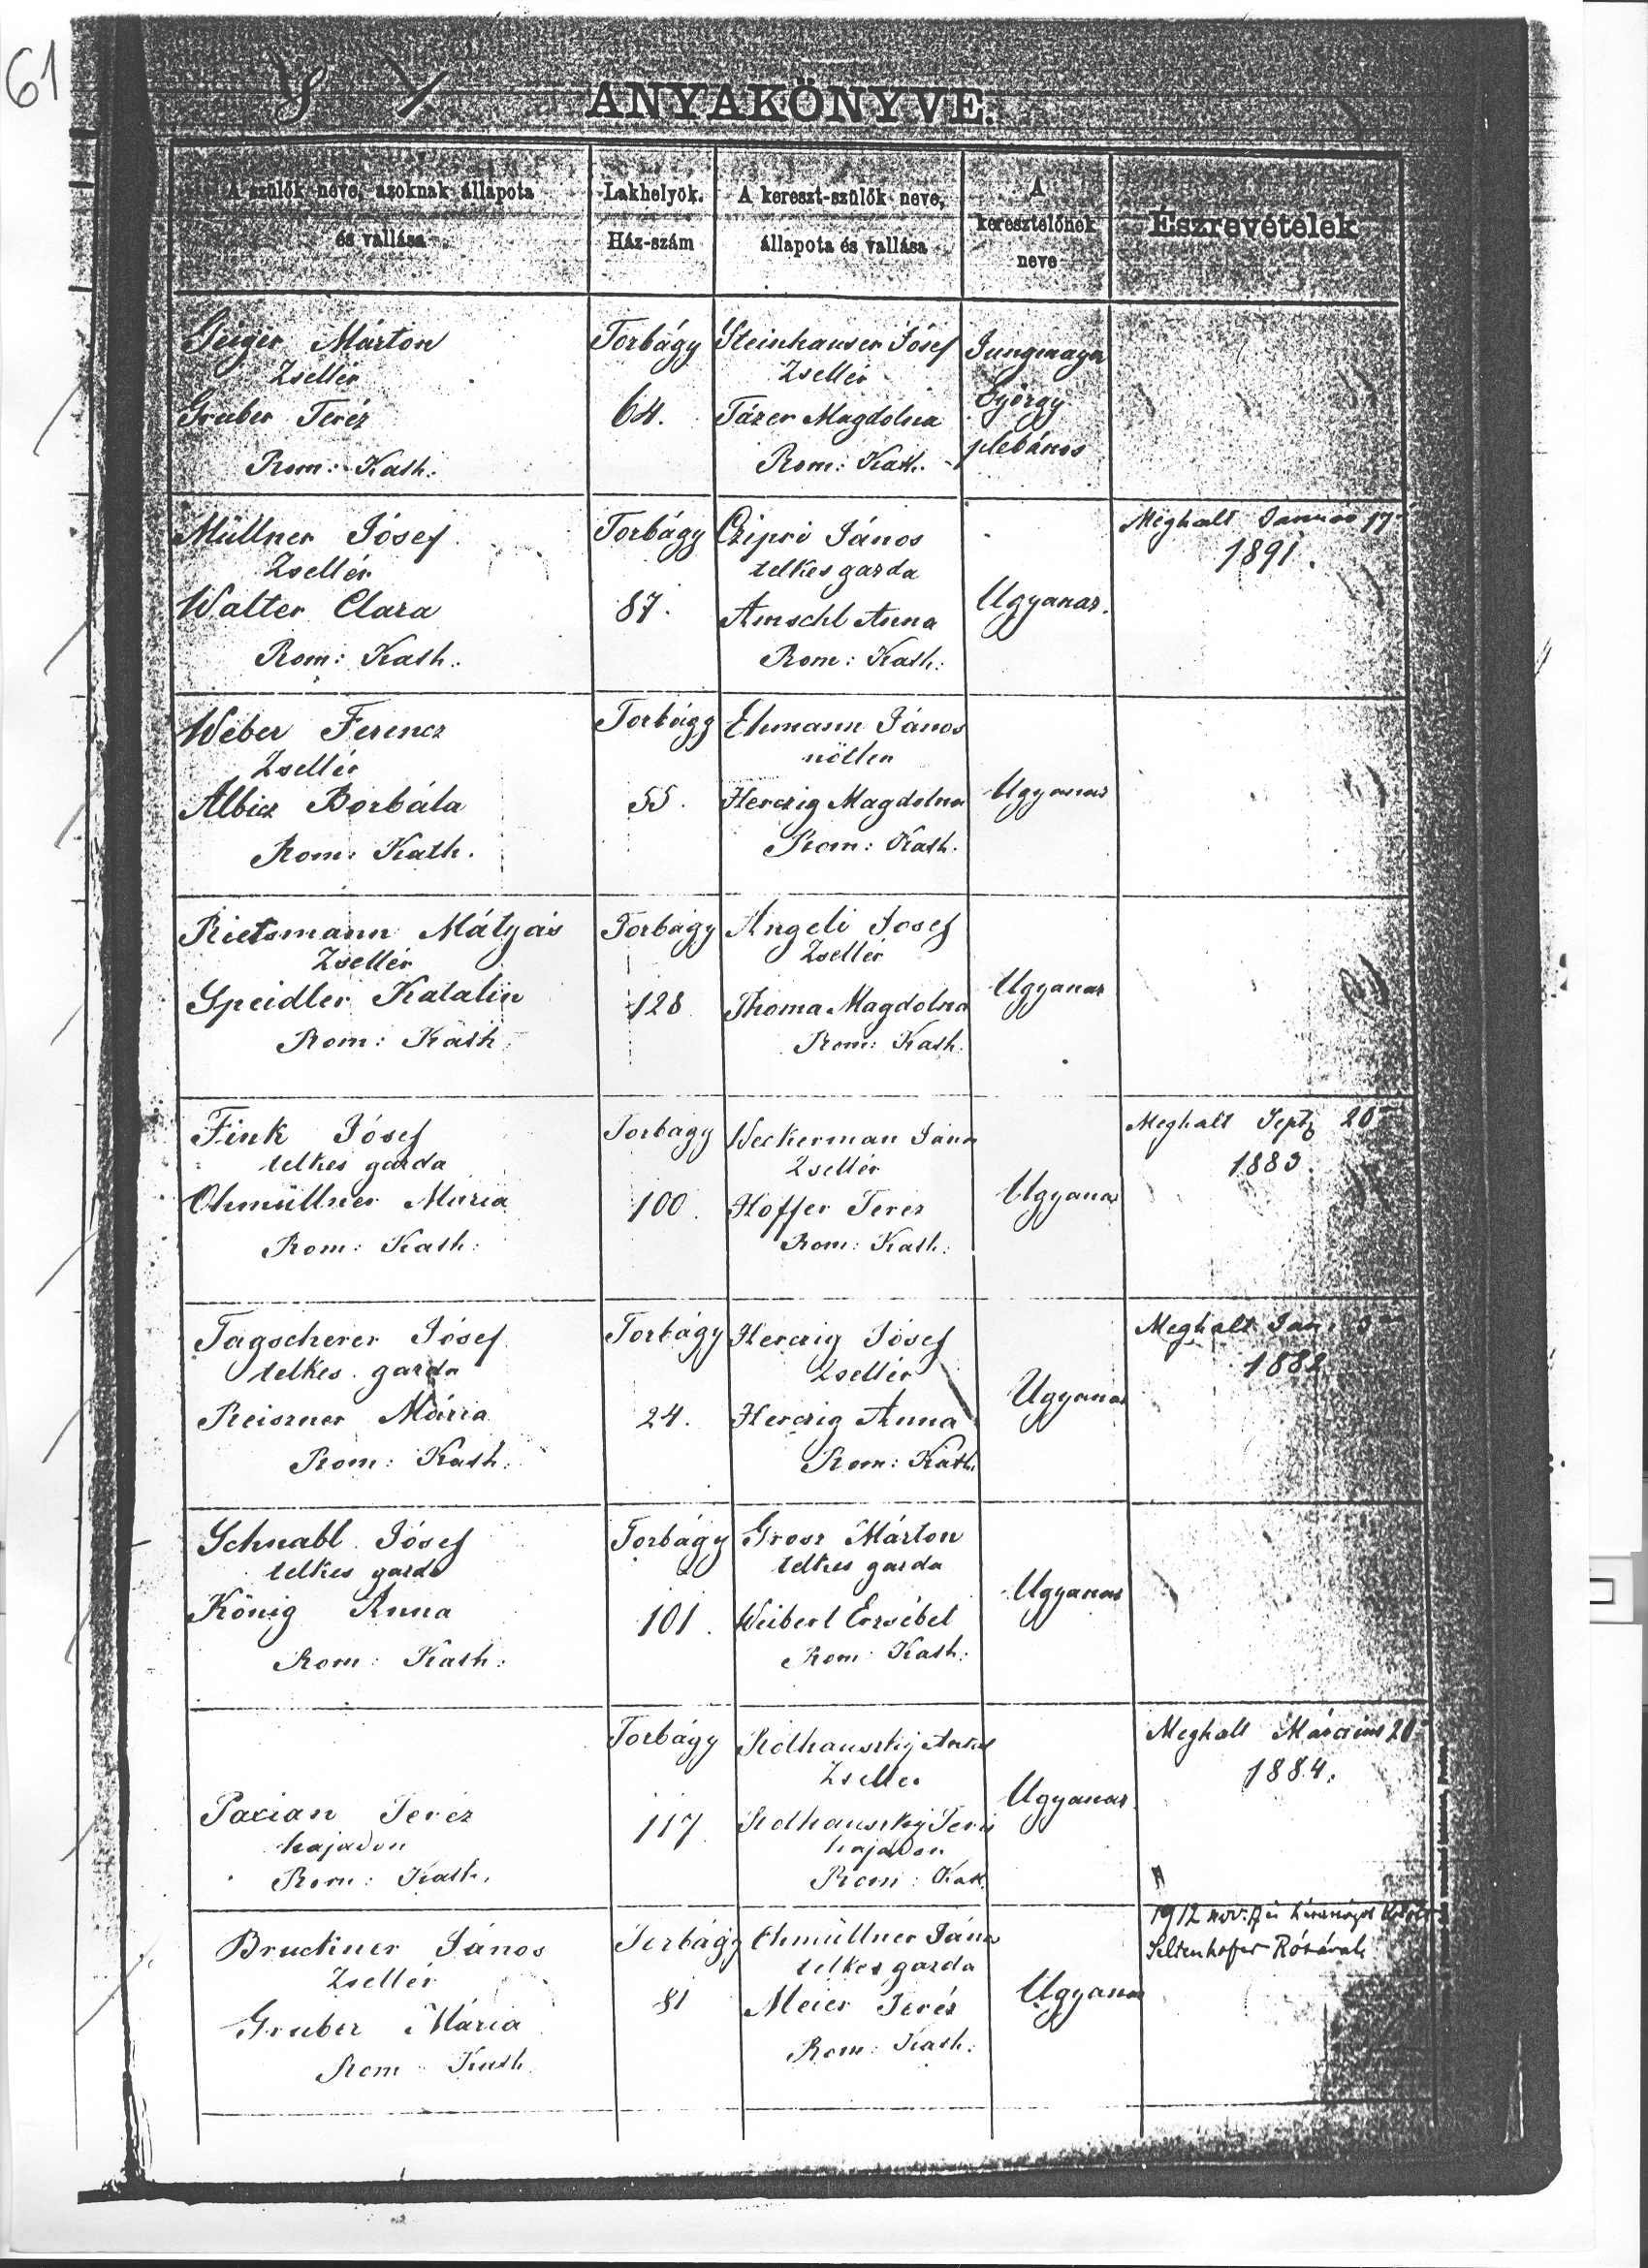 61
ANYAKÖNYVE.
A szülők neve, azoknak állapota
és vallása
Lakhelyök.
Ház-szám
A kereszt-szülők neve,
állapota és vallása
A
keresztelőnek
neve
Észrevételek
Geiger Márton
Zsellér
Gruber Teréz
Rom: Kath:
Torbágy
64.
Steinhauser Jósef
Zsellér
Tázer Magdolna
Rom: Kath.
Jungmayer
György
plebános
Müllner Jósef
Zsellér
Walter Clara
Rom: Kath:
Torbágy
87.
Czipri János
telkes gazda
Amschl Anna
Rom: Kath:
Ugyanaz.
Meghalt Januar 17
1891.
Weber Ferencz
Zsellér
Albicz Borbála
Rom: Kath.
Torbágy
55.
Ehmann János
nőtlen
Herczig Magdolna
Rom: Kath.
Ugyanaz
Rietsmann Mátyás
Zsellér
Speidler Katalin
Rom: Kath
Torbágy
128
Angeli Josef
Zsellér
Thoma Magdolna
Rom: Kath.
Ugyanaz
Fink Jósef
telkes gazda
Ohmüllner Mária
Rom: Kath:
Torbágy
100.
Weckerman János
Zsellér
Hoffer Terez
Rom: Kath:
Ugyanaz
Meghalt Sept 20
1883.
Tagscherer Jósef
telkes gazda
Reiszner Mária
Rom: Kath:
Torbágy
24.
Herczig Jósef
Zsellér
Herczig Anna
Rom: Kath.
Ugyanaz
Meghalt Jan:
Schnabl Jósef
telkes gazda
König Anna
Rom: Kath:
Torbágy
101.
Grosz Márton
telkes gazda
Weibert Erzsébet
Rom: Kath:
Ugyanaz
Paxian Teréz
hajadon
Rom: Kath.
Torbágy
117
Zseller
hajadon
Rom: Kath.
Ugyanaz
Meghalt Március 20
1884.
Bruckner János
Zsellér
Gruber Mária
Rom: Kath
Torbágy
81
Ohmüllner János
telkes gazda
Meier Teréz
Rom: Kath.
Ugyanaz
1912 nov.
Seltenhofer Rózával